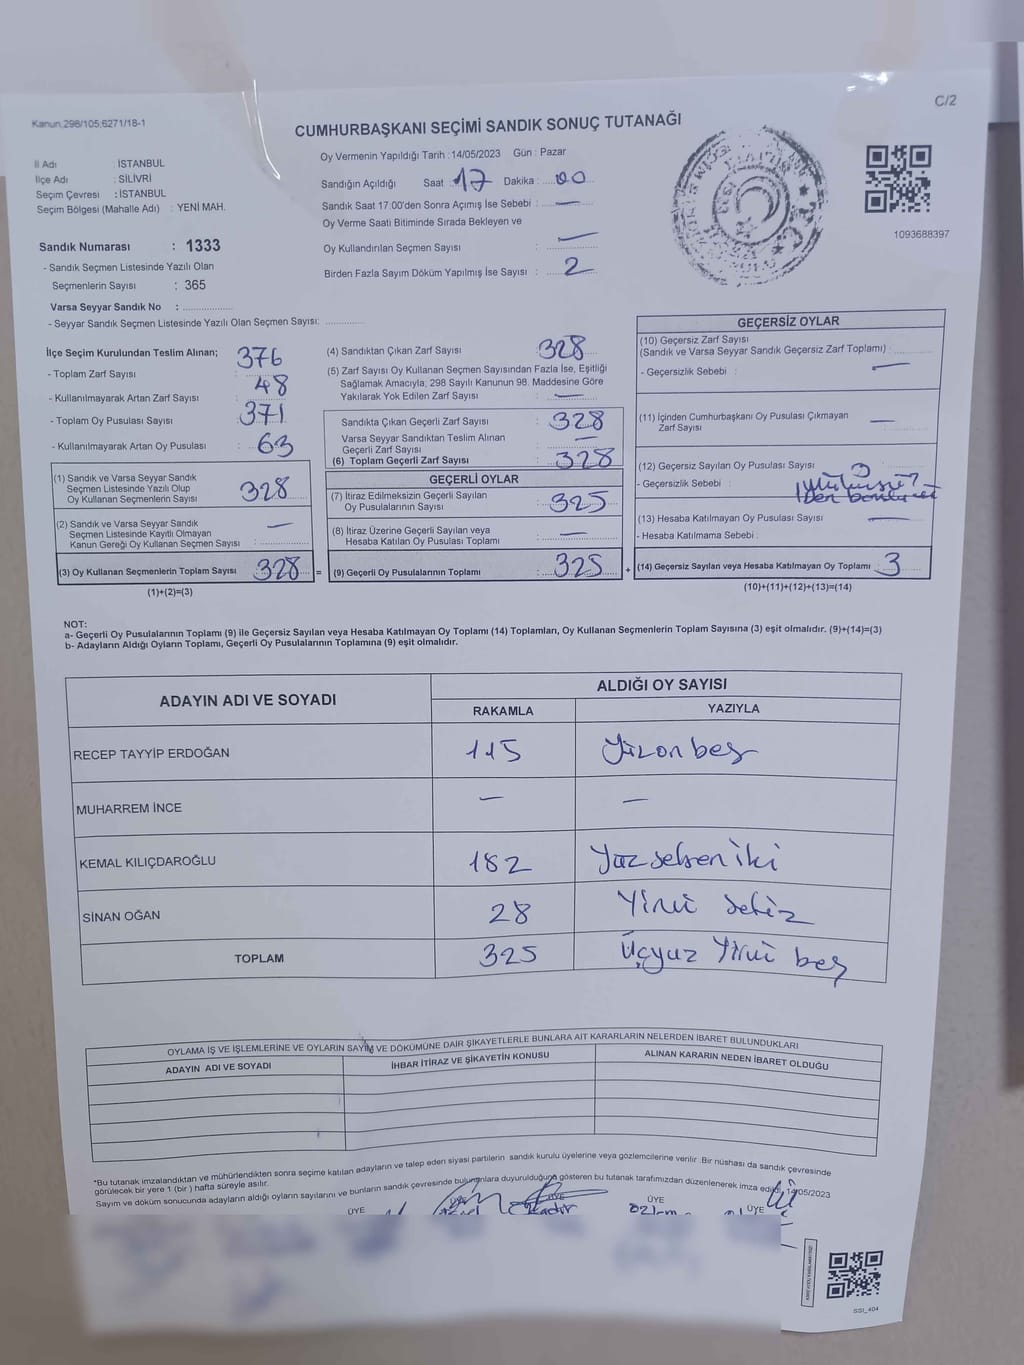 C/2
Kanun:298/105;6271/18-1
CUMHURBAŞKANI SEÇİMİ SANDIK SONUÇ TUTANAĞI
İl Adı : İSTANBUL
İlçe Adı : SİLİVRİ
Seçim Çevresi : İSTANBUL
Seçim Bölgesi (Mahalle Adı) : YENİ MAH.
Sandık Numarası : 1333
- Sandık Seçmen Listesinde Yazılı Olan
Seçmenlerin Sayısı : 365
Varsa Seyyar Sandık No :
- Seyyar Sandık Seçmen Listesinde Yazılı Olan Seçmen Sayısı:
Oy Vermenin Yapıldığı Tarih : 14/05/2023 Gün : Pazar
Sandığın Açıldığı Saat : 17 Dakika : 00
Sandık Saat 17:00'den Sonra Açımış İse Sebebi : —
Oy Verme Saati Bitiminde Sırada Bekleyen ve
Oy Kullandırılan Seçmen Sayısı : —
Birden Fazla Sayım Döküm Yapılmış İse Sayısı : 2
1093688397
İlçe Seçim Kurulundan Teslim Alınan;
- Toplam Zarf Sayısı 376
- Kullanılmayarak Artan Zarf Sayısı : 48
- Toplam Oy Pusulası Sayısı : 371
- Kullanılmayarak Artan Oy Pusulası : 63
(1) Sandık ve Varsa Seyyar Sandık
Seçmen Listesinde Yazılı Olup
Oy Kullanan Seçmenlerin Sayısı : 328
(2) Sandık ve Varsa Seyyar Sandık
Seçmen Listesinde Kayıtlı Olmayan
Kanun Gereği Oy Kullanan Seçmen Sayısı : —
(3) Oy Kullanan Seçmenlerin Toplam Sayısı 328 =
(1)+(2)=(3)
(4) Sandıktan Çıkan Zarf Sayısı : 328
(5) Zarf Sayısı Oy Kullanan Seçmen Sayısından Fazla İse, Eşitliği
Sağlamak Amacıyla; 298 Sayılı Kanunun 98. Maddesine Göre
Yakılarak Yok Edilen Zarf Sayısı : —
Sandıkta Çıkan Geçerli Zarf Sayısı : 328
Varsa Seyyar Sandıktan Teslim Alınan
Geçerli Zarf Sayısı : —
(6) Toplam Geçerli Zarf Sayısı : 328
GEÇERLİ OYLAR
(7) İtiraz Edilmeksizin Geçerli Sayılan
Oy Pusulalarının Sayısı : 325
(8) İtiraz Üzerine Geçerli Sayılan veya
Hesaba Katılan Oy Pusulası Toplamı : —
(9) Geçerli Oy Pusulalarının Toplamı : 325 +
GEÇERSİZ OYLAR
(10) Geçersiz Zarf Sayısı
(Sandık ve Varsa Seyyar Sandık Geçersiz Zarf Toplamı) :
- Geçersizlik Sebebi : —
(11) İçinden Cumhurbaşkanı Oy Pusulası Çıkmayan
Zarf Sayısı : —
(12) Geçersiz Sayılan Oy Pusulası Sayısı : 3
- Geçersizlik Sebebi :
(13) Hesaba Katılmayan Oy Pusulası Sayısı : —
- Hesaba Katılmama Sebebi :
(14) Geçersiz Sayılan veya Hesaba Katılmayan Oy Toplamı : 3
(10)+(11)+(12)+(13)=(14)
NOT:
a- Geçerli Oy Pusulalarının Toplamı (9) ile Geçersiz Sayılan veya Hesaba Katılmayan Oy Toplamı (14) Toplamları, Oy Kullanan Seçmenlerin Toplam Sayısına (3) eşit olmalıdır. (9)+(14)=(3)
b- Adayların Aldığı Oyların Toplamı, Geçerli Oy Pusulalarının Toplamına (9) eşit olmalıdır.
ADAYIN ADI VE SOYADI ALDIĞI OY SAYISI
RAKAMLA YAZIYLA
RECEP TAYYİP ERDOĞAN 115 Yüzon beş
MUHARREM İNCE — —
KEMAL KILIÇDAROĞLU 182 Yüz seksen iki
SİNAN OĞAN 28 Yirmi sekiz
TOPLAM 325 Üçyüz Yirmi beş
OYLAMA İŞ VE İŞLEMLERİNE VE OYLARIN SAYIM VE DÖKÜMÜNE DAİR ŞİKAYETLERLE BUNLARA AİT KARARLARIN NELERDEN İBARET BULUNDUKLARI
ADAYIN ADI VE SOYADI İHBAR İTİRAZ VE ŞİKAYETİN KONUSU ALINAN KARARIN NEDEN İBARET OLDUĞU
*Bu tutanak imzalandıktan ve mühürlendikten sonra seçime katılan adayların ve talep eden siyasi partilerin sandık kurulu üyelerine veya gözlemcilerine verilir. Bir nüshası da sandık çevresinde
görülecek bir yere 1 (bir) hafta süreyle asılır.
Sayım ve döküm sonucunda adayların aldığı oyların sayılarını ve bunların sandık çevresinde bulunanlara duyurulduğunu gösteren bu tutanak tarafımızdan düzenlenerek imza edildi. 14/05/2023
ÜYE ÜYE ÜYE ÜYE ÜYE
SSI_404